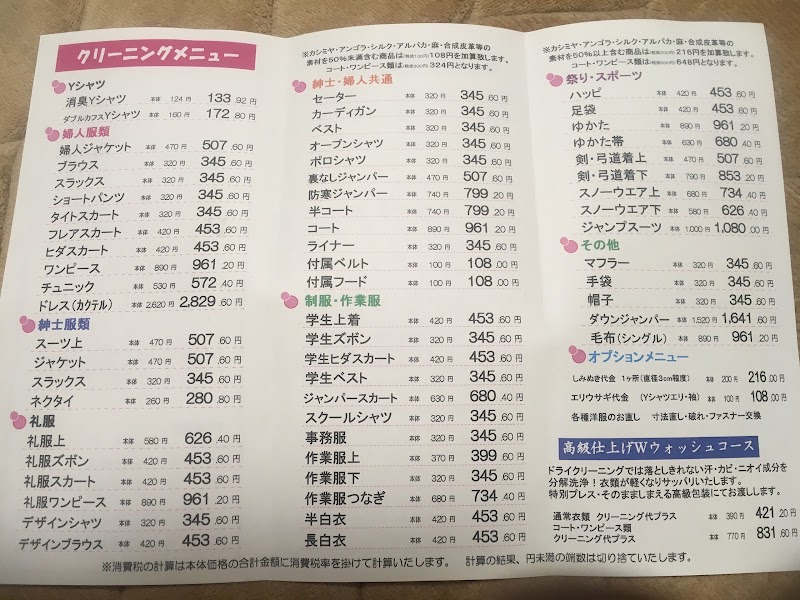 クリーニングメニュー
Yシャツ
消臭Yシャツ 本体 124円 133.92円
ダブルカフスYシャツ 本体 160円 172.80円
婦人服類
婦人ジャケット 本体 470円 507.60円
ブラウス 本体 320円 345.60円
スラックス 本体 320円 345.60円
ショートパンツ 本体 320円 345.60円
タイトスカート 本体 320円 345.60円
フレアスカート 本体 420円 453.60円
ヒダスカート 本体 420円 453.60円
ワンピース 本体 890円 961.20円
チュニック 本体 530円 572.40円
ドレス(カクテル) 本体 2,620円 2,829.60円
紳士服類
スーツ上 本体 470円 507.60円
ジャケット 本体 470円 507.60円
スラックス 本体 320円 345.60円
ネクタイ 本体 260円 280.80円
礼服
礼服上 本体 580円 626.40円
礼服ズボン 本体 420円 453.60円
礼服スカート 本体 420円 453.60円
礼服ワンピース 本体 890円 961.20円
デザインシャツ 本体 320円 345.60円
デザインブラウス 本体 420円 453.60円
※カシミヤ・アンゴラ・シルク・アルパカ・麻・合成皮革等の
素材を50%未満含む商品は(税抜100円)108円を加算致します。
コート・ワンピース類は(税抜300円)324円となります。
紳士・婦人共通
セーター 本体 320円 345.60円
カーディガン 本体 320円 345.60円
ベスト 本体 320円 345.60円
オープンシャツ 本体 320円 345.60円
ポロシャツ 本体 320円 345.60円
裏なしジャンパー 本体 470円 507.60円
防寒ジャンパー 本体 740円 799.20円
半コート 本体 740円 799.20円
コート 本体 890円 961.20円
ライナー 本体 320円 345.60円
付属ベルト 本体 100円 108.00円
付属フード 本体 100円 108.00円
制服・作業服
学生上着 本体 420円 453.60円
学生ズボン 本体 320円 345.60円
学生ヒダスカート 本体 420円 453.60円
学生ベスト 本体 320円 345.60円
ジャンパースカート 本体 630円 680.40円
スクールシャツ 本体 320円 345.60円
事務服 本体 320円 345.60円
作業服上 本体 370円 399.60円
作業服下 本体 320円 345.60円
作業服つなぎ 本体 680円 734.40円
半白衣 本体 420円 453.60円
長白衣 本体 420円 453.60円
※カシミヤ・アンゴラ・シルク・アルパカ・麻・合成皮革等の
素材を50%以上含む商品は(税抜200円)216円を加算致します。
コート・ワンピース類は(税抜600円)648円となります。
祭り・スポーツ
ハッピ 本体 420円 453.60円
足袋 本体 420円 453.60円
ゆかた 本体 890円 961.20円
ゆかた帯 本体 630円 680.40円
剣・弓道着上 本体 470円 507.60円
剣・弓道着下 本体 790円 853.20円
スノーウエア上 本体 680円 734.40円
スノーウエア下 本体 580円 626.40円
ジャンプスーツ 本体 1,000円 1,080.00円
その他
マフラー 本体 320円 345.60円
手袋 本体 320円 345.60円
帽子 本体 320円 345.60円
ダウンジャンパー 本体 1,520円 1,641.60円
毛布(シングル) 本体 890円 961.20円
オプションメニュー
しみぬき代金 1ヶ所(直径3cm程度) 本体 200円 216.00円
エリウサギ代金 (Yシャツエリ・袖) 本体 100円 108.00円
各種洋服のお直し 寸法直し・破れ・ファスナー交換
高級仕上げWウォッシュコース
ドライクリーニングでは落としきれない汗・カビ・ニオイ成分を
分解洗浄!衣類が軽くなりサッパリいたします。
特別プレス・そのまましまえる高級包装にてお渡しします。
通常衣類 クリーニング代プラス 本体 390円 421.20円
コート・ワンピース類
クリーニング代プラス 本体 770円 831.60円
※消費税の計算は本体価格の合計金額に消費税率を掛けて計算いたします。 計算の結果、円未満の端数は切り捨ていたします。